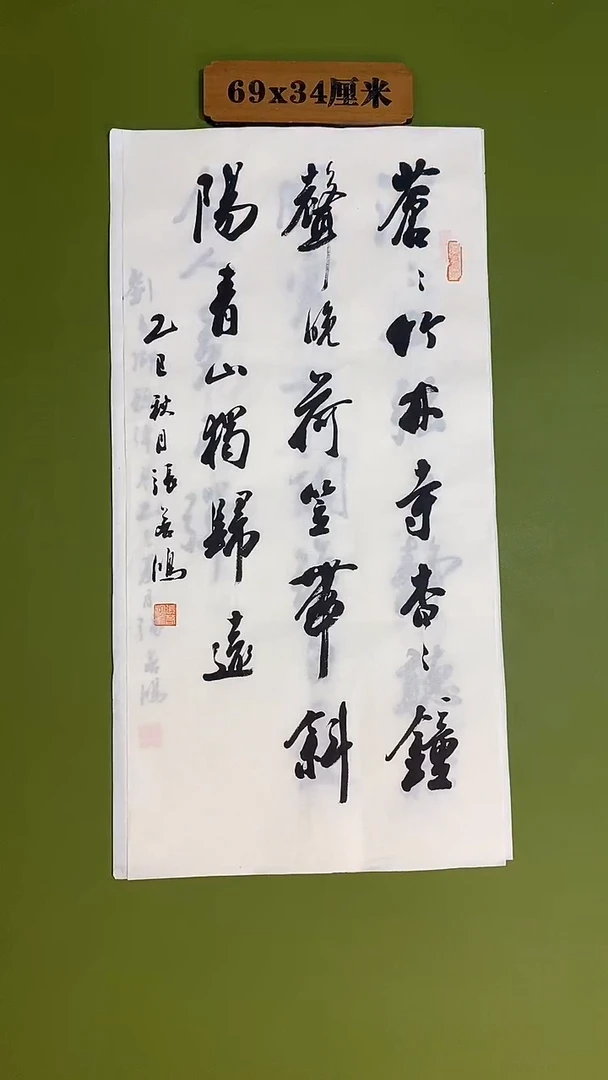 69x34厘米
蒼〻竹林寺杳〻鐘
聲晚荷笠帶斜
陽青山獨歸遠
乙巳秋月張鴻